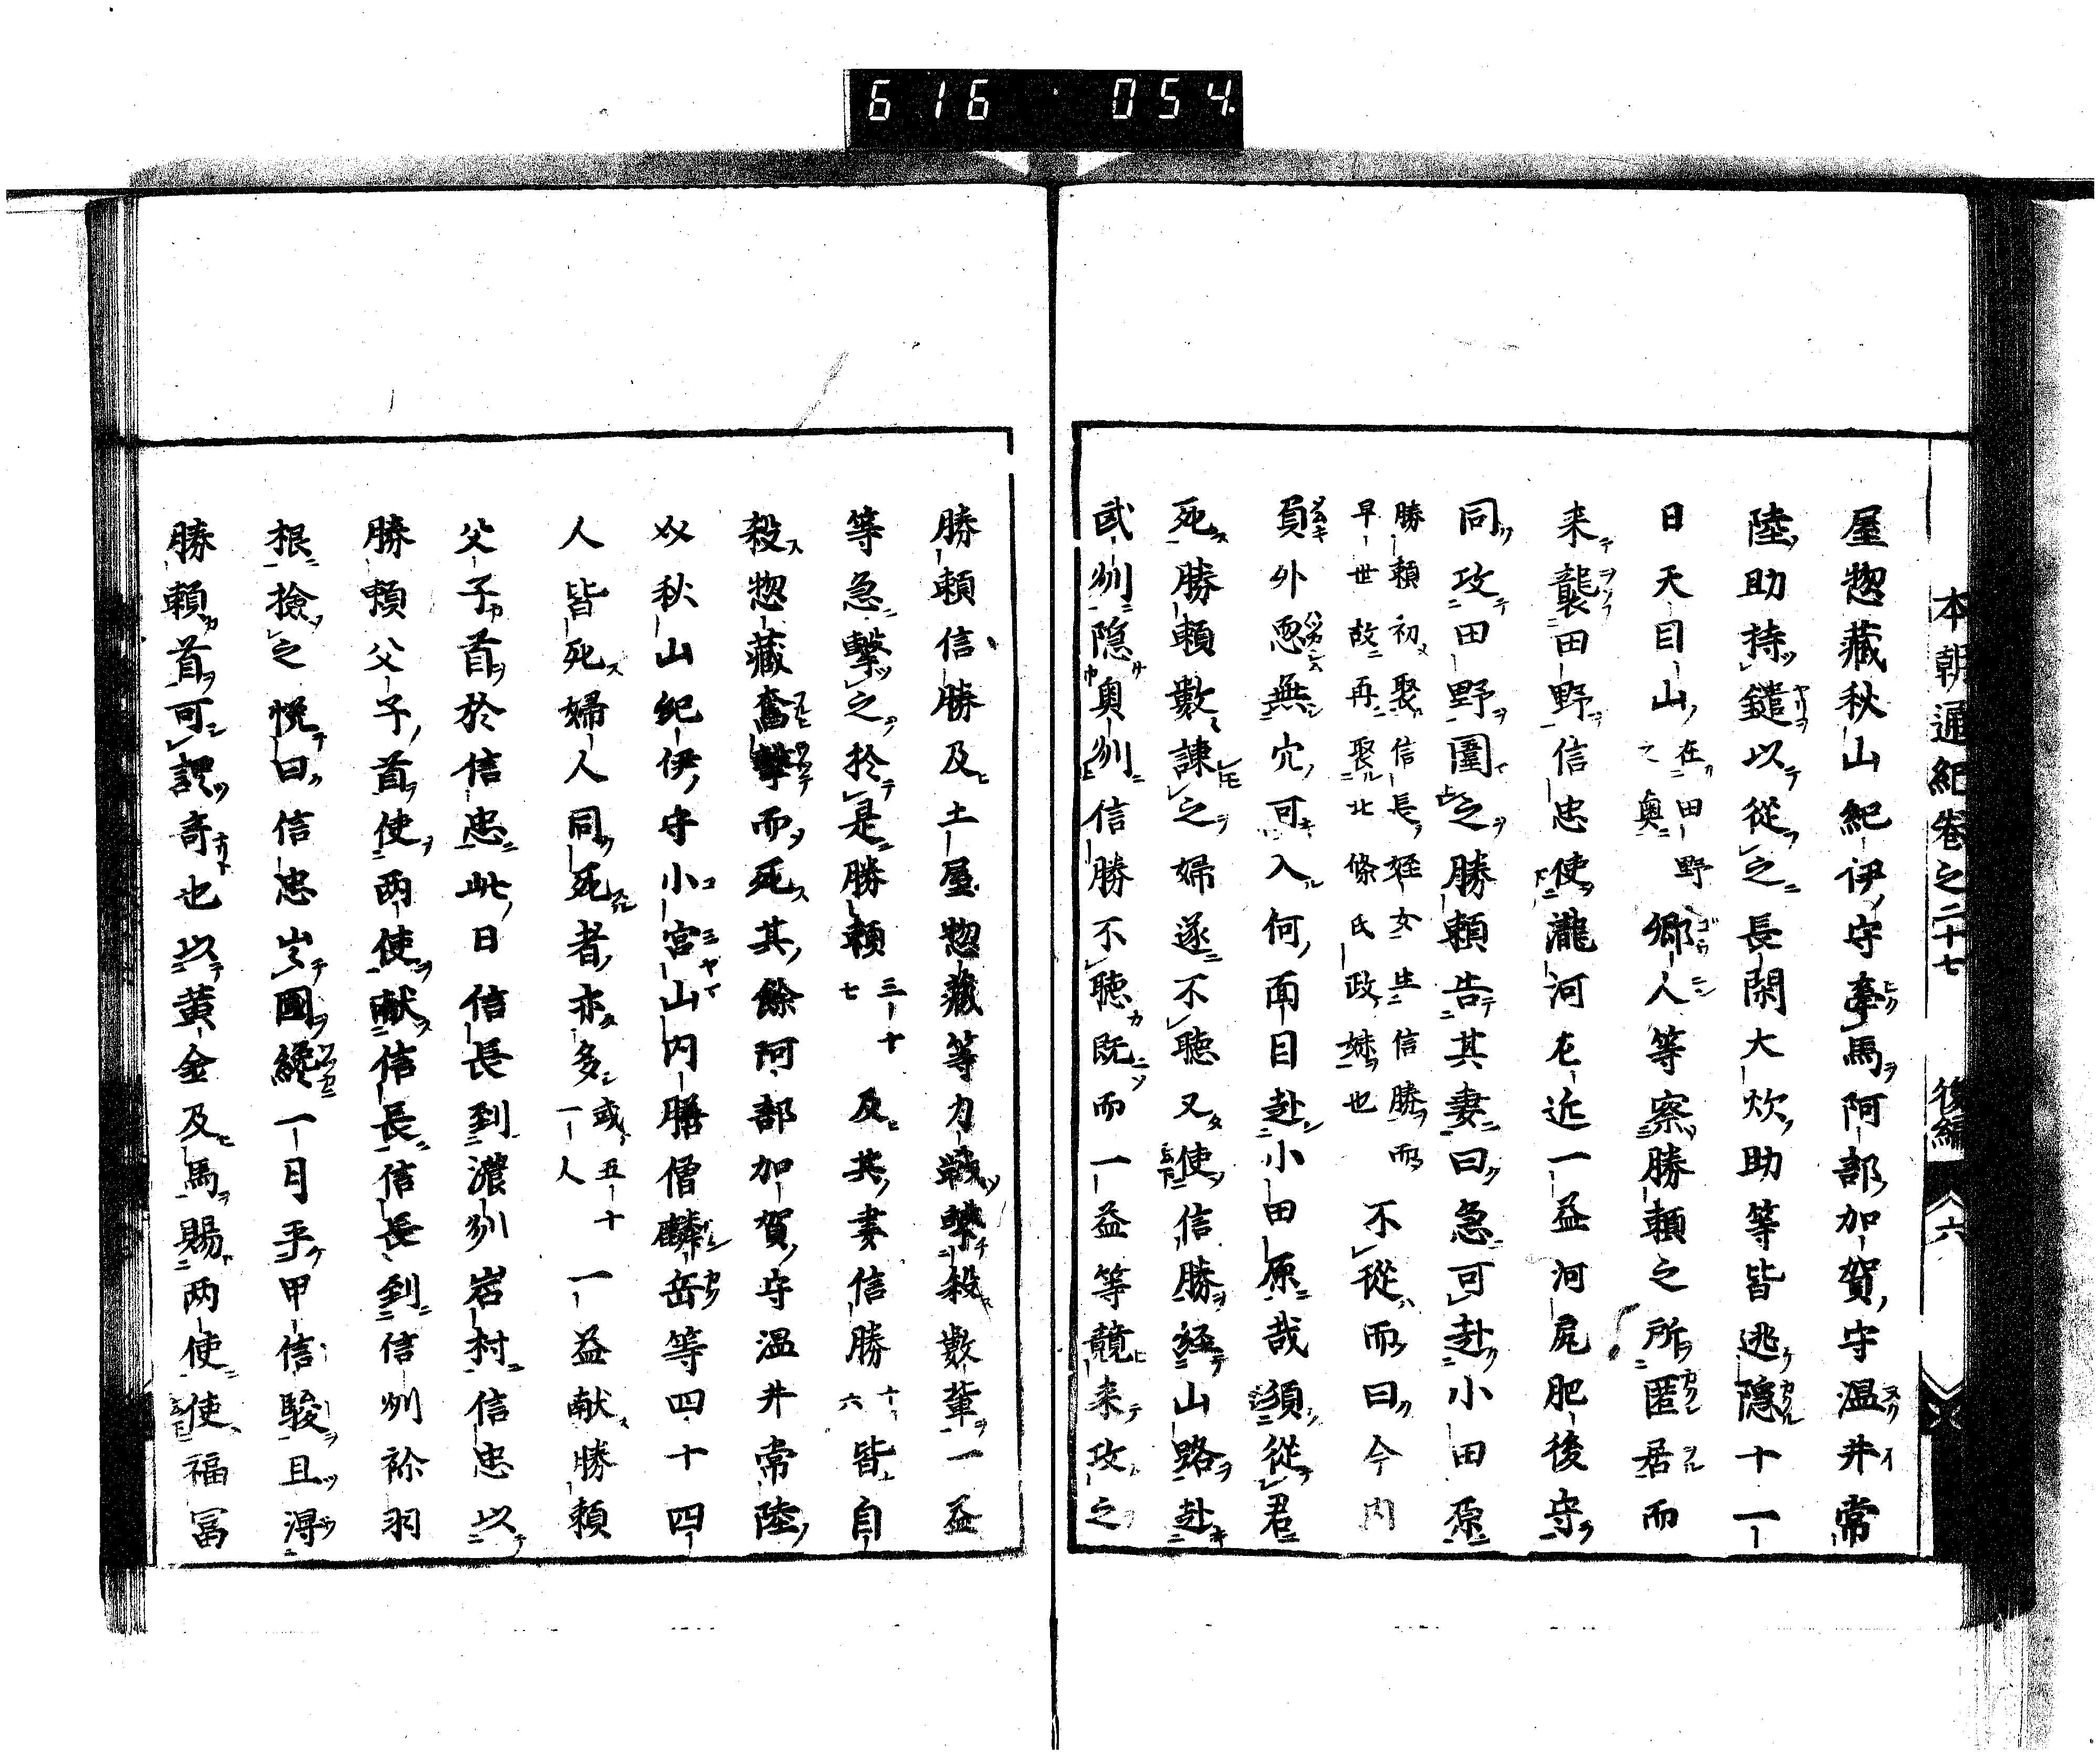 616 054
本朝通紀巻之二十七 後編 六
屋惣藏秋山紀伊守牽馬阿部加賀守温井常
陸助持鑓以從之長閑大炊助等皆逃隱十一
日天目山在田野之奥郷人等察勝頼之所匿居而
来襲田野信忠使瀧河左近一益河尻肥後守
同攻田野圍之勝頼告其妻曰急可赴小田原
勝頼初娶信長姪女生信勝而早世故再娶北條氏政妹也不從而曰今内
負外恧無穴可入何面目赴小田原哉須從君
死勝頼數諌之婦遂不聽又使信勝経山路赴
武州隠奥州信勝不聽既而一益等競来攻之
勝頼信勝及土屋惣藏等力戰擊殺數輩一益
等急擊之於是勝頼三十七及其妻信勝十六皆自
殺惣藏奮擊而死其餘阿部加賀守温井常陸
以秋山紀伊守小宮山内膳僧麟岳等四十四
人皆死婦人同死者亦多或五十一人一益献勝頼
父子首於信忠此日信長到濃州岩村信忠以
勝頼父子首使两使献信長信長到信州祢羽
根撿之悦曰信忠出國纔一月平甲信駿且得
勝頼首可謂奇也以黄金及馬賜两使使福冨